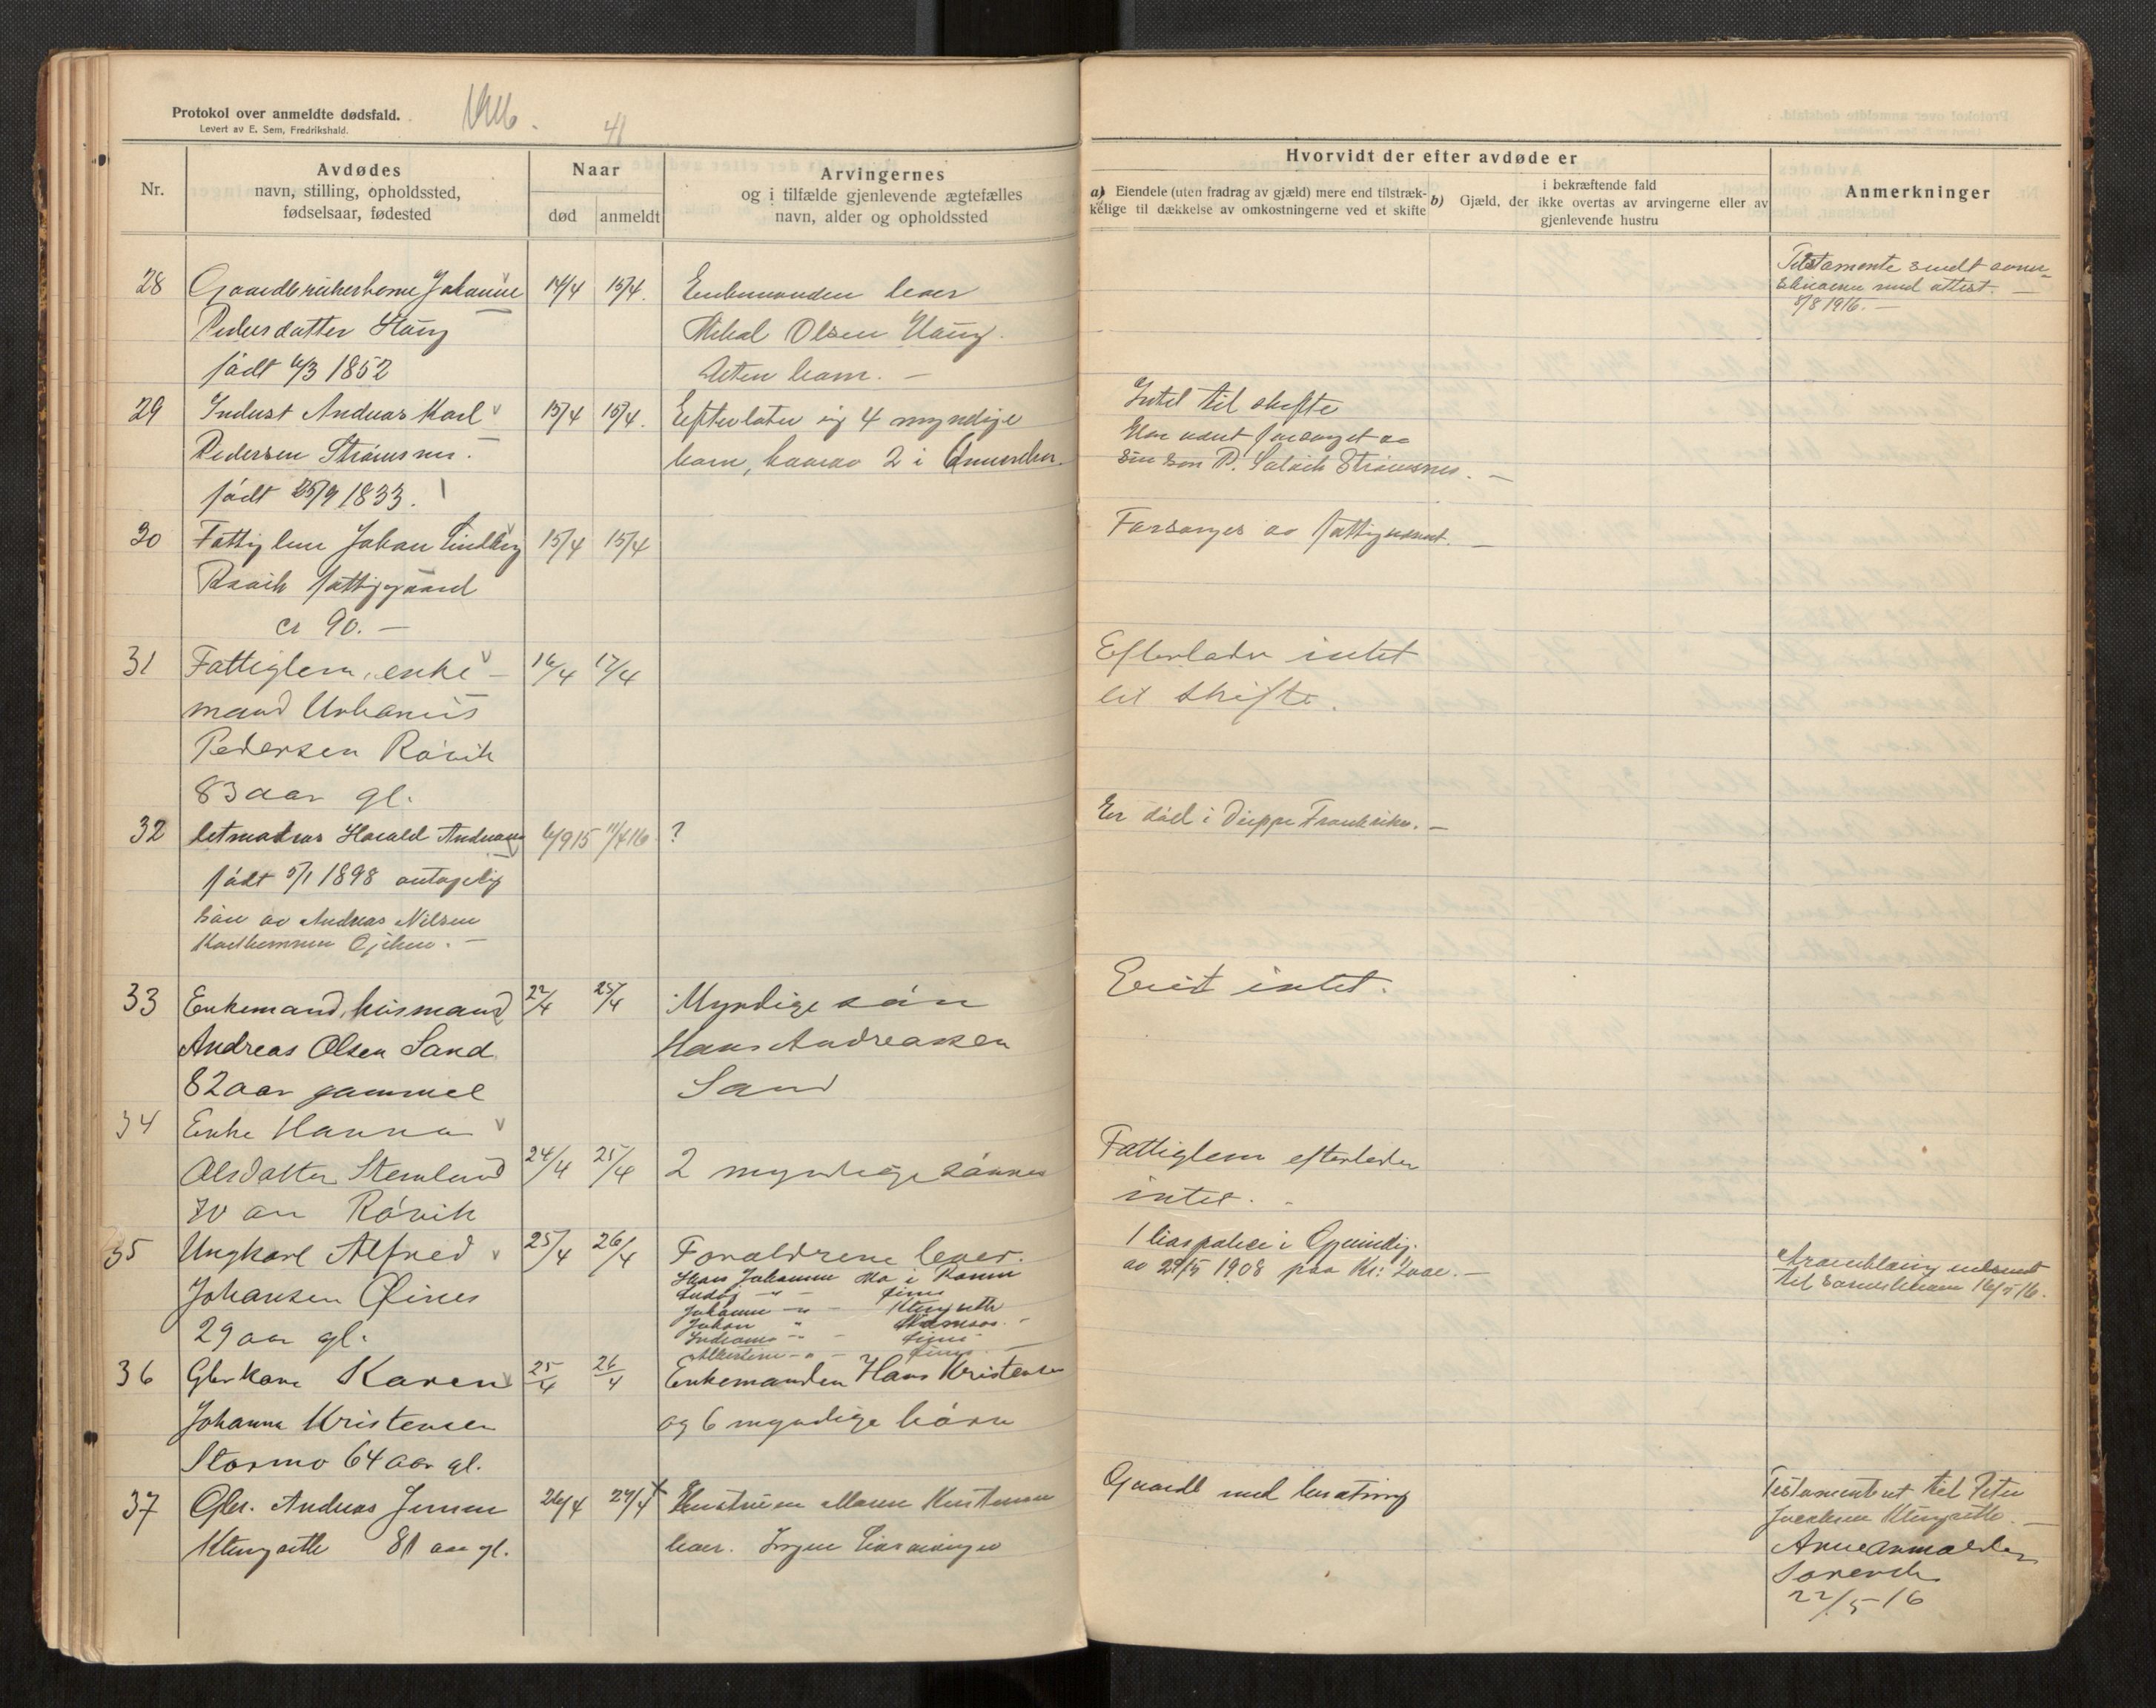 Protokol over anmeldte dødsfald.
Levert av E. Sem, Fredrikshald.
41
Nr.
Avdødes
navn, stilling, opholdssted,
fødselsaar, fødested
Naar
død
anmeldt
Arvingernes
og i tilfælde gjenlevende ægtefælles
navn, alder og opholdssted
Hvorvidt der efter avdøde er
a) Eiendele (uten fradrag av gjæld) mere end tilstræk-
kelige til dækkelse av omkostningerne ved et skifte
i bekræftende fald
b) Gjæld, der ikke overtas av arvingerne eller av
gjenlevende hustru
Anmerkninger
28
Gaardbrukerkone Johanne
Pedersdatter Haug
født 6/3 1852
14/4 15/4.
Enkemanden lever
Mikal Olsen Haug.
Uten barn. —
Testamente sendt
med attest. —
5/8 1916. —
29
Indust Andreas Karl
Pedersen Strømsnes.
født 25/9 1833.
15/4 15/4.
Efterlater sig 4 myndige
barn, hvorav 2 i Amerika.
Intet til skifte
Har været forsørget av
sin søn P. Strømsnes. —
30
Fattiglem Johan Lindberg
Røsvik fattiggaard
ca 90. —
15/4 15/4
Forsørges av fattigvæsenet. —
31
Fattiglem, enke-
mand Urbanus
Pedersen Røsvik
83 aar gl.
16/4 17/4
Efterlader intet
til skifte.
32
Letmatros Harald Andreassen
født 5/1 1898 antagelig
søn av Andreas Nilsen
6/9 15 11/4 16
?
Er død i Dieppe Frankrike. —
33
Enkemand, husmand
Andreas Olsen Sand
82 aar gammel
22/4 25/4
Myndige søn
Hans Andreassen
Sand
Eiet intet.
34
Enke Hanna
Olsdatter Stemland
70 aar Røsvik
24/4 25/4
2 myndige sønner
Fattiglem efterlader
intet. -
35
Ungkarl Alfred
Johansen Øines
29 aar gl.
25/4 26/4
Forældrene lever.
Hans Johansen Mo i Ranen
Øines
Johanne
Johan
Øines
Albertine Øines
1 livspolice i Gjensidig.
av 29/5 1908 paa Kr:
til 16/5 16.
36
Gbr kone Karen
Johanna Kristensen
Stormo 64 aar gl.
25/4 26/4
Enkemanden Hans Kristensen
og 6 myndige børn
37
Gbr. Andreas Jensen
81 aar gl.
26/4 27/4
Hustruen Maren Kristensen
lever. Ingen livsarvinger
Gaardb med besætning
Testamentet til Peter
Arveanmelder
22/5-16